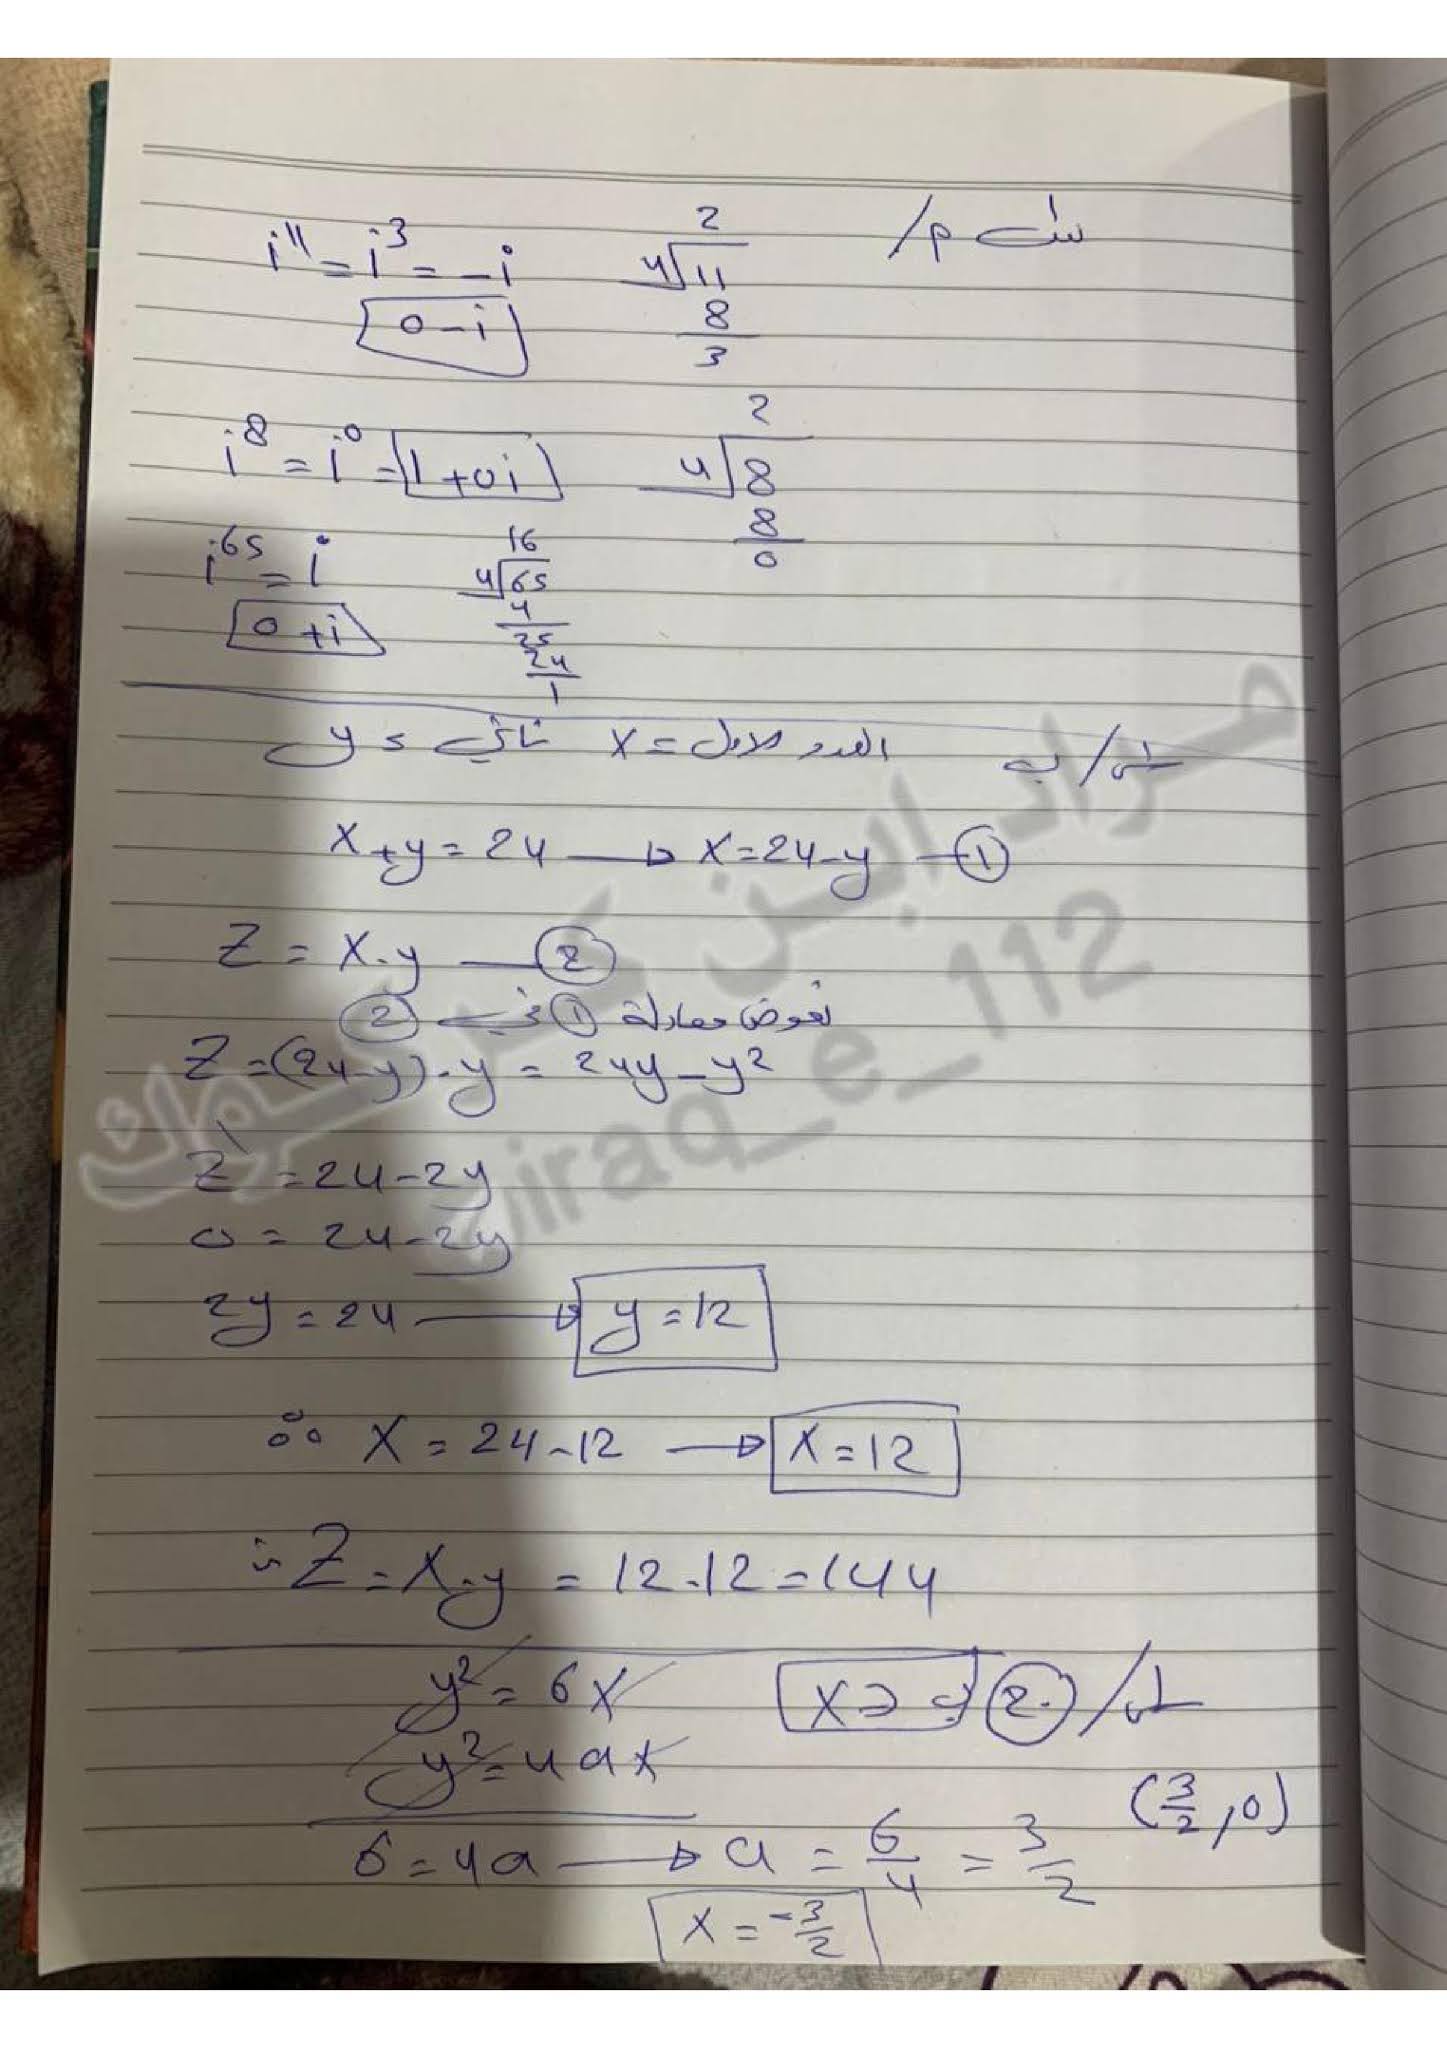 س١ م/
i¹¹ = i³ = -i
0 - i
2
4√11
8
3
i⁸ = i⁰ = 1 + 0i
2
4√8
8
0
i⁶⁵ = i
0 + i
16
4√65
4
25
24
1
س١/ ب
العدد الاول = x ثاني = y
x + y = 24 → x = 24 - y — ①
Z = x . y — ②
نعوض معادلة ① في ②
Z = (24 - y) . y = 24y - y²
Z' = 24 - 2y
0 = 24 - 2y
2y = 24 → y = 12
∴ x = 24 - 12 → x = 12
∴ Z = x . y = 12 . 12 = 144
س/ ②
y² = 6x
y² = 4ax
6 = 4a → a = 6/4 = 3/2
(3/2, 0)
x = -3/2
مراد ابن كركوك
iraq_e_112